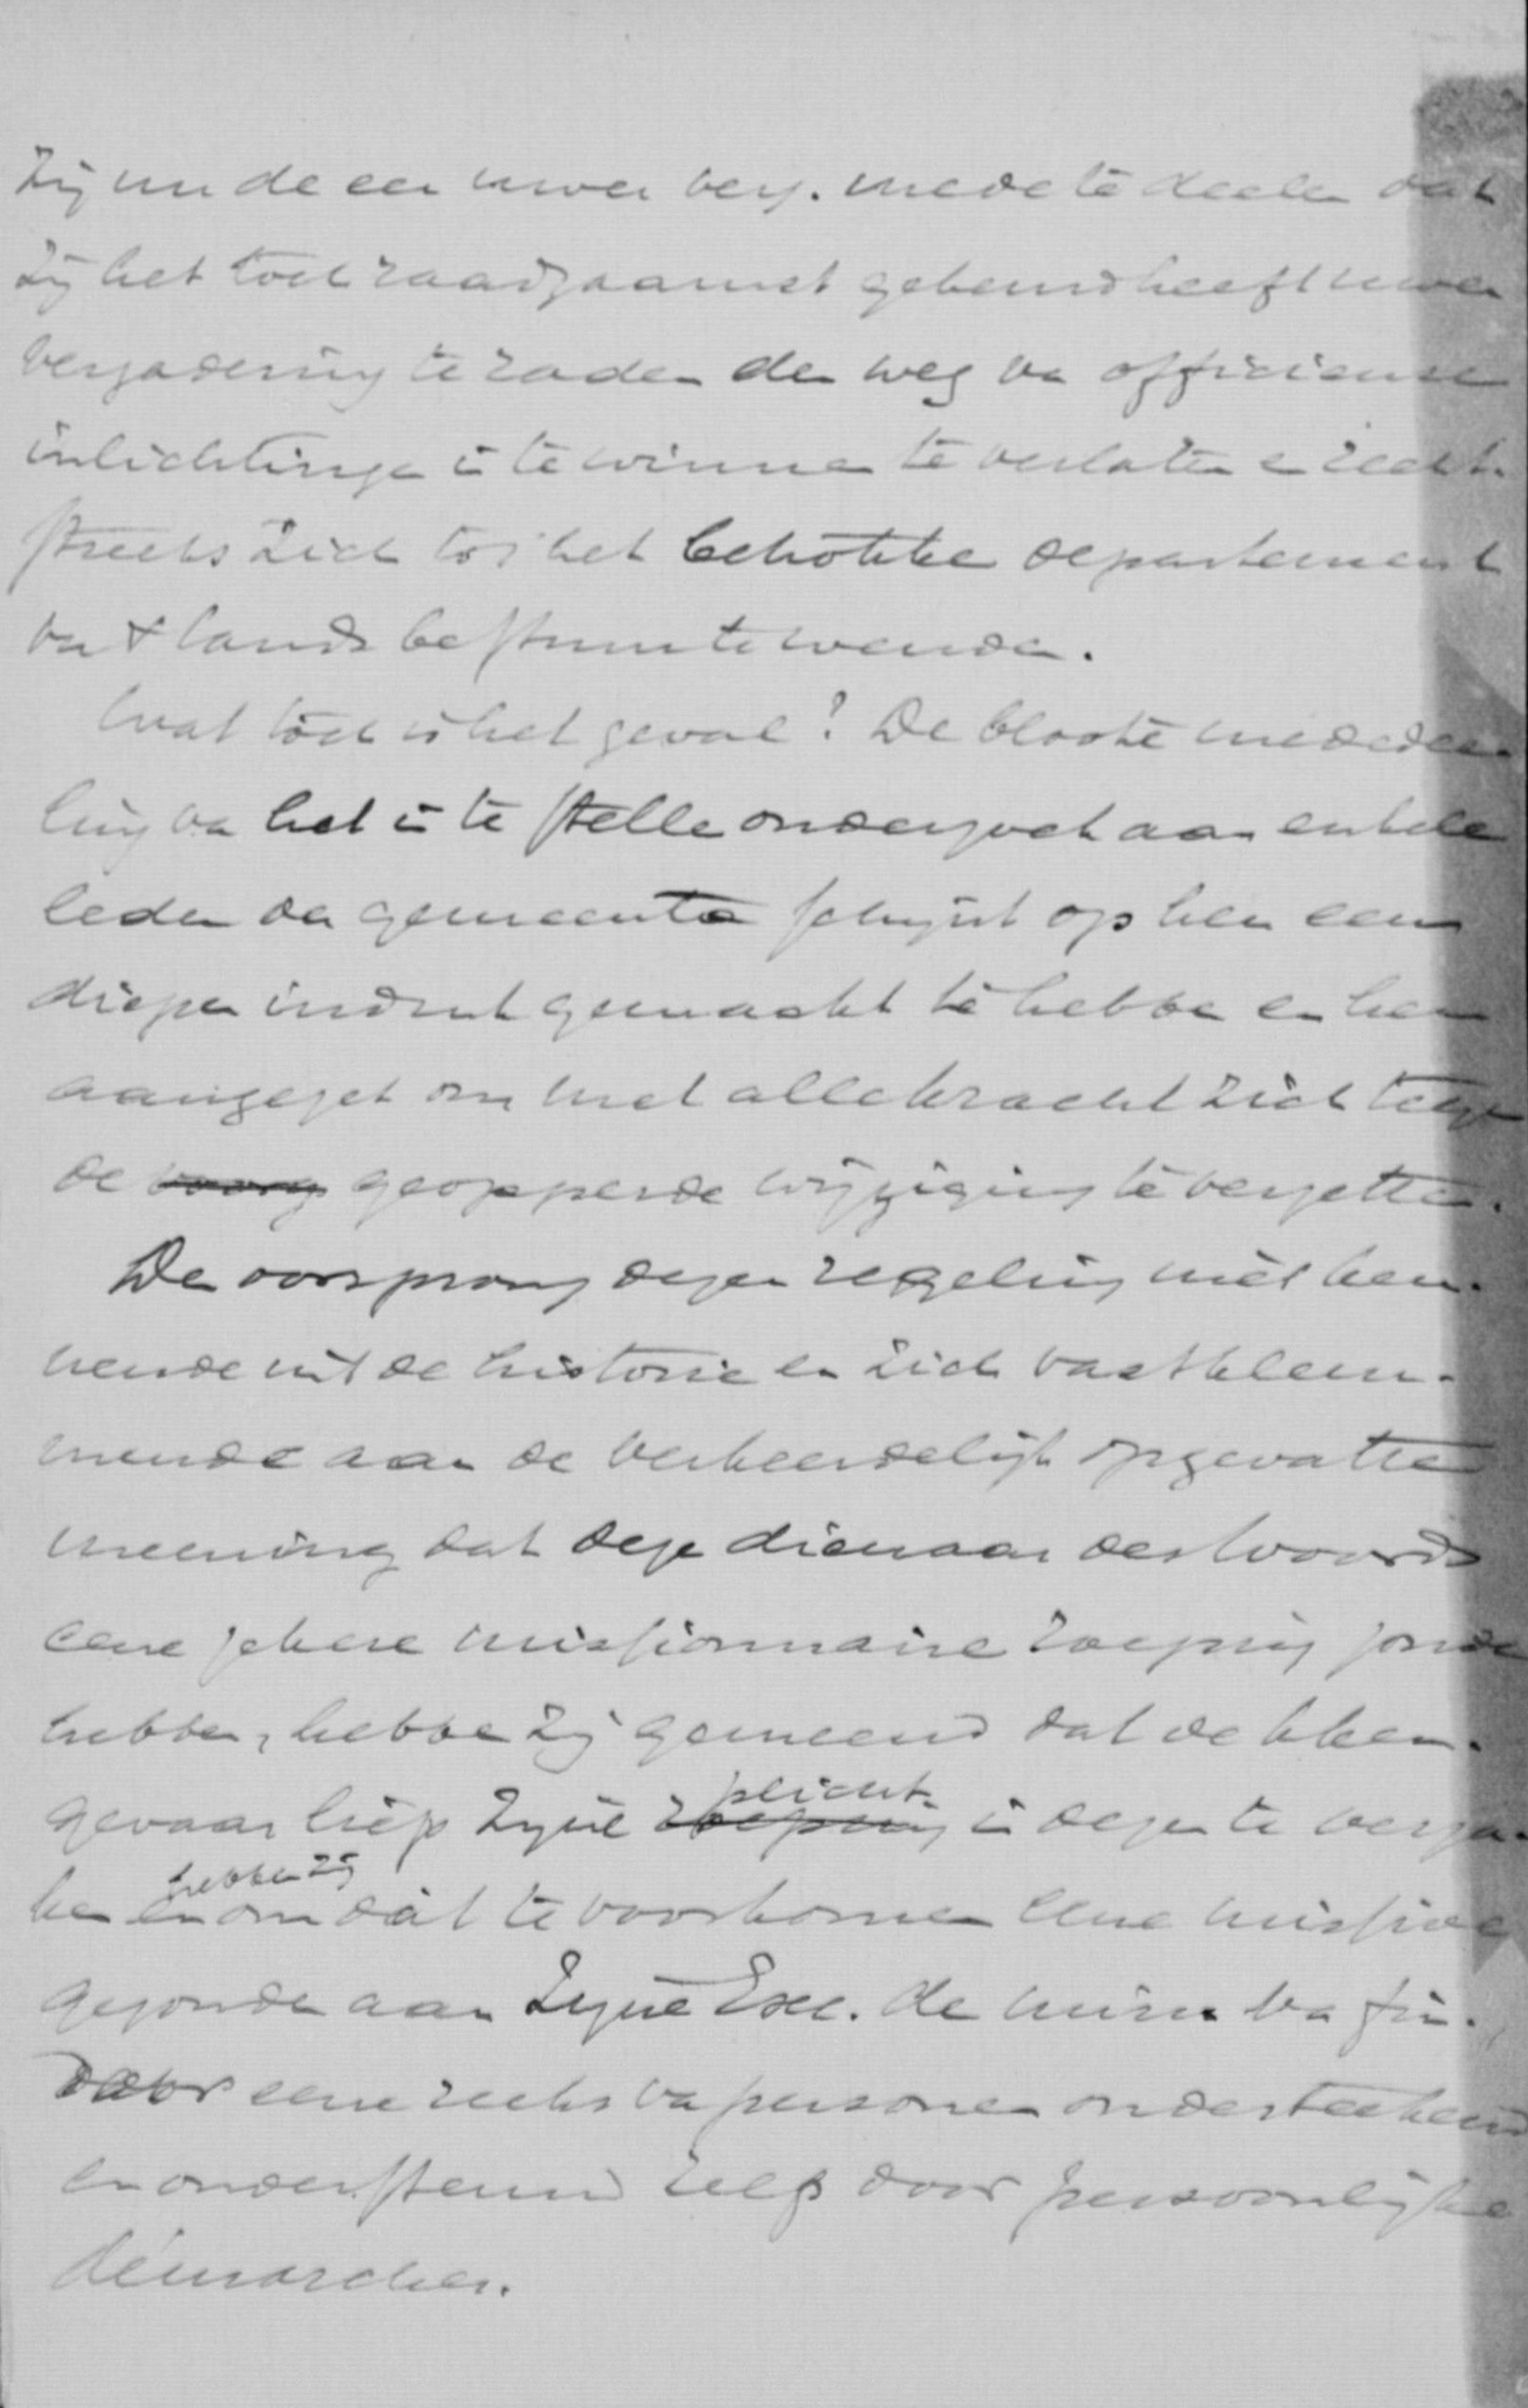 zij nu de eer uwer verg. mede te deelen dat
zij het toch raadzaamst gekeurd heeft uwer
vergadering te raden den weg van officieuse
inlichtingen in te winnen te verlaten en recht-
streeks zich tot het betrokken departement
van 's lands bestuur te wenden.
Wat toch is het geval? De bloote mededee-
ling van het in te stellen onderzoek aan enkele
leden der gemeente schijnt op hen een
diepen indruk gemaakt te hebben en hen
aangezet om met alle kracht zich tegen
de voorg geopperde wijziging te verzetten.
Den oorsprong dezer regeling niet ken-
nende uit de historie en zich vastklem-
mende aan de verkeerdelijk opgevatte
meening dat deze dienaar des Woords
eene zekere missionnaire roeping zoude
hebben, hebben zij gemeend dat de kken.
gevaar liep zijne roeping plicht in dezen te verza-
ken en hebben zij om dát te voorkomen eene missive
gezonden aan Zijne Exc. de minr. van fin.,
door eene reeks van personen onderteekend
en ondersteund zelfs door persoonlijke
démarches.